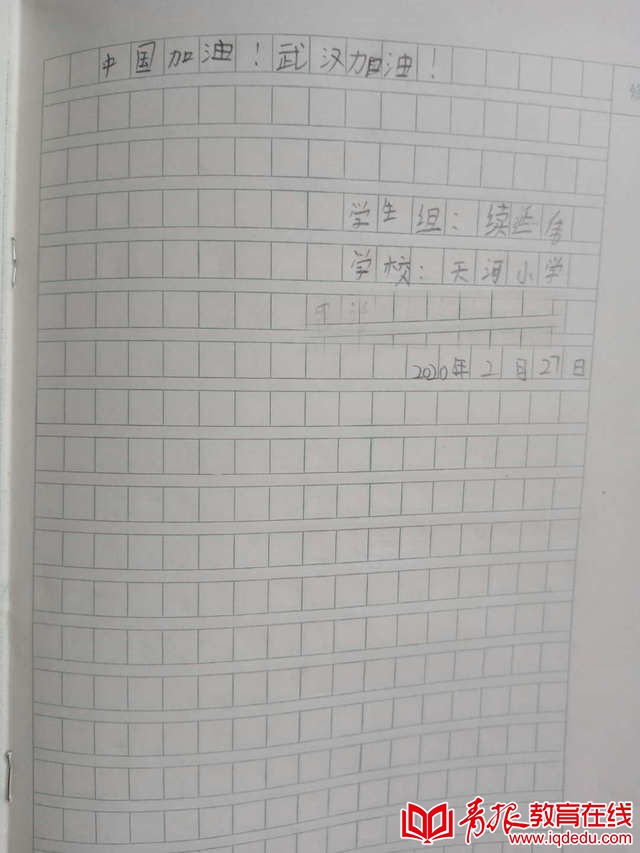 中国加油！武汉加油！
学生组：续
学校：天河小学
2020年2月27日
青报教育在线
www.iqdedu.com